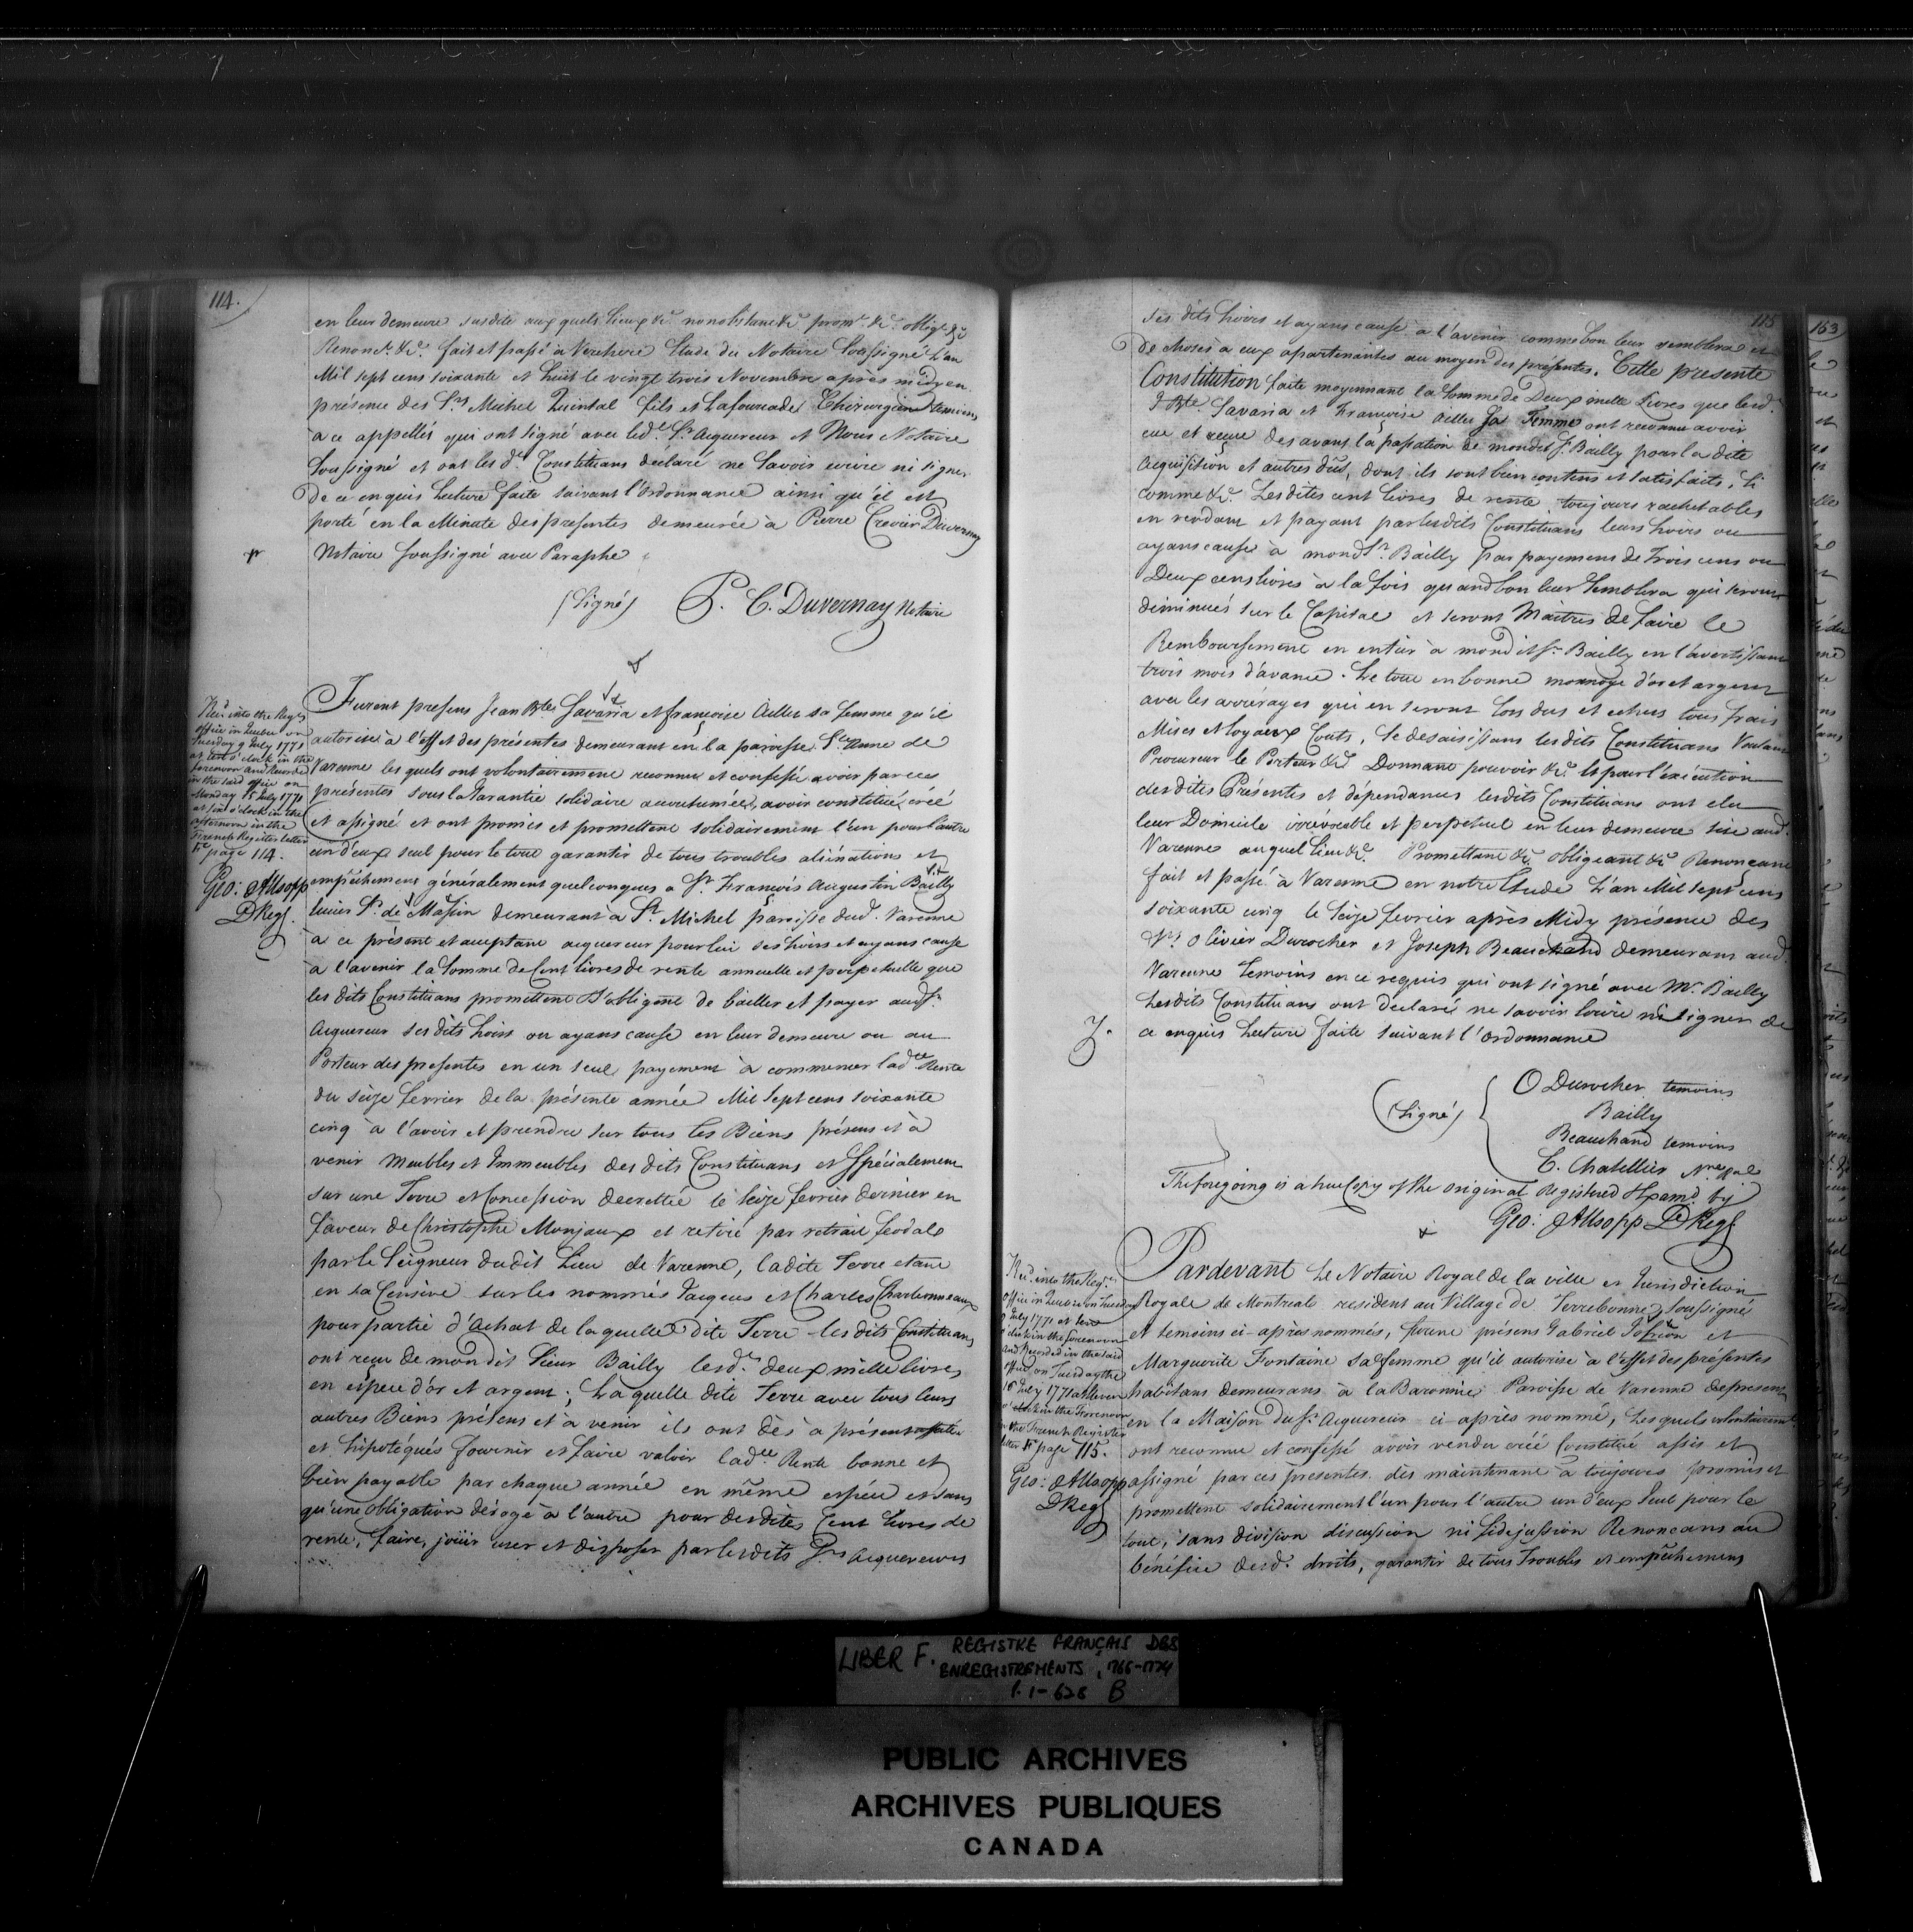 114.
en leur demeure susdite aux quels Lieux &c. nonobstant &c. prom.t &c. oblig.t &c
Renonc.t &c. fait et passé à Verchere Etude du Notaire Soussigné L'an
Mil sept cens soixante et huit le vingt trois Novembre après midy en
présence des S.rs Michel Quintal fils et Lafourcade Chirurgien temoins
à ce appellés qui ont signé avec led.t S.r Acquereur et Nous Notaire
Soussigné et ont les d.ts Constituans déclaré ne Savoir écrire ni signer
De ce enquis Lecture faite suivant l'Ordonnance ainsi qu'il est
porté en la Minute des presentes demeurée à Pierre Crevier Duvernay
Notaire Soussigné avec Paraphe
(Signé) P. C. Duvernay Notaire
Rec.d into the Regrs
office in Quebec on
Tuesday 9 July 1771
at ten o'clock in the
forenoon and Recorded
in the said office on
Monday 15 July 1771
at six o'clock in the
afternoon in the
French Register letter
F page 114.
Geo: Allsopp
D Regr.
Furent presens Jean Bte. Savaria et françoise Aillet sa femme qu'il
autorise à l'effet des présentes demeurant en la paroisse Ste. Anne de
Varenne les quels ont volontairement reconnu et confessé avoir par ces
présentes sous la Garantie solidaire accoutumée, avoir constitué, créé
et assigné et ont promis et promettent solidairement l'un pour l'autre
un d'eux seul pour le tout garantir de tous troubles aliénations et
empêchemens généralement quelconques a Sr. François Augustin Bailly
Sr. de Massin demeurant à St. Michel paroisse dud. Varenne
à ce présent et acceptant acquereur pour lui ses hoirs et ayans cause
à l'avenir la Somme de Cent livres de rente annuelle et perpetuelle que
les dits Constituans promettent S'obligent de bailler et payer aud Sr.
Acquereur ses dits hoirs ou ayans cause en leur demeure ou au
Porteur des presentes en un seul payement à commencer lad.te Rente
du seize fevrier de la présente année Mil sept cens soixante
cinq à l'avoir et prendre sur tous les Biens présens et à
venir Meubles et Immeubles des dits Constituans et Spécialement
sur une Terre et Concession decrettée le seize fevrier dernier en
faveur de Christophe Monjaux et retiré par retrait feodal
par le Seigneur dudit Lieu de Varenne, ladite Terre etant
en sa Censive sur les nommés Jacques et Charles Charbonneaux
pour partie d'Achat de laquelle dite Terre les dits Constituans
ont reçu de mondit Sieur Bailly lesd.ts deux mille livres
en espece d'or et argent; Laquelle dite Terre avec tous leurs
autres Biens présens et à venir ils ont dès à présent
et hipotéqués fournir et faire valoir lad.te Rente bonne et
bien payable par chaque année en même espéce et sans
qu'une obligation déroge à l'autre pour desdites Cent livres de
rente, faire, jouir user et disposer par lesdits Srs Acquereurs
115
Ses dits hoirs et ayans cause à l'avenir comme bon leur semblera et
de choses à eux apartenantes au moyen des présentes. Cette presente
Constitution faite moyennant la Somme de Deux mille Livres que lesd.
J Bte. Savaria et Françoise Aillet Sa Femme ont reconnu avoir
eue et reçue des avant la passation de mondit Sr. Bailly pour la dite
Acquisition et autres dûs, dont ils sont bien contens et satisfaits, Si
comme &c. Lesdites cent livres de rente toujours rachetables
en rendant et payant par lesdits Constituans leurs hoirs ou
ayans cause à mond Sr. Bailly par payemens de Trois cens ou
Deux cens livres à la fois quand bon leur semblera qui seront
diminués sur le Capital et seront Maitres de faire le
Remboursement en entier à mondit Sr. Bailly en l'avertissant
trois mois d'avance. Le tout en bonne monnoye d'or et argent
avec les arrérages qui en seront lors dus et echus tous frais
Mises et loyaux Couts, Se desaisissans lesdits Constituans Voulant
Procureur le Porteur &c. Donnant pouvoir &c. Et pour l'exécution
desdites Présentes et dépendances lesdits Constituans ont elu
leur Domicile irrévocable et perpetuel en leur demeure sise aud.
Varennes auquel Lieu &c. Promettant &c. obligeant &c. Renonçant
fait et passé à Varenne en notre Etude L'an Mil Sept cens
soixante cinq le Seize fevrier après Midy présence des
Srs. Olivier Durocher et Joseph Beauchand demeurans aud.
Varenne Temoins en ce requis qui ont signé avec Mr. Bailly
Lesdits Constituans ont declaré ne savoir écrire ni signer de
ce enquis Lecture faite suivant l'Ordonnance
(Signé) O Durocher temoins
Bailly
Beauchand temoins
C. Chatellier Nre
The foregoing is a true Copy of the original Registered & Exam.d by
Geo: Allsopp D Regr
Rec.d into the Regrs
office in Quebec on Tuesday
9 July 1771 at ten
o'clock in the forenoon
and Recorded in the said
office on Tuesday the
16 July 1771 at Eleven
o'clock in the Forenoon
in the French Register
letter F page 115.
Geo: Allsopp
D Regr
Pardevant Le Notaire Royal de la ville et Jurisdiction
Royale de Montreal resident au Village de Terrebonne Soussigné
et temoins ci-après nommés, furent présens Gabriel et
Marguerite Fontaine Sa femme qu'il autorise à l'effet des présentes
habitans demeurans à la Baronnie Paroisse de Varenne de present
en la Maison du Sr. Acquereur ci-après nommé, Lesquels volontairement
ont reconnu et confessé avoir vendu créé Constitué assis et
assigné par ces presentes dès maintenant à toujours promis et
promettent solidairement l'un pour l'autre un d'eux Seul pour le
tout, sans division discussion ni fidejussion Renoncans au
bénéfice desd. droits, garantir de tous Troubles et empêchemens
163
LIBER F. REGISTRE FRANÇAIS DES
ENREGISTREMENTS, 1766-1774
f. 1-628 B
PUBLIC ARCHIVES
ARCHIVES PUBLIQUES
CANADA